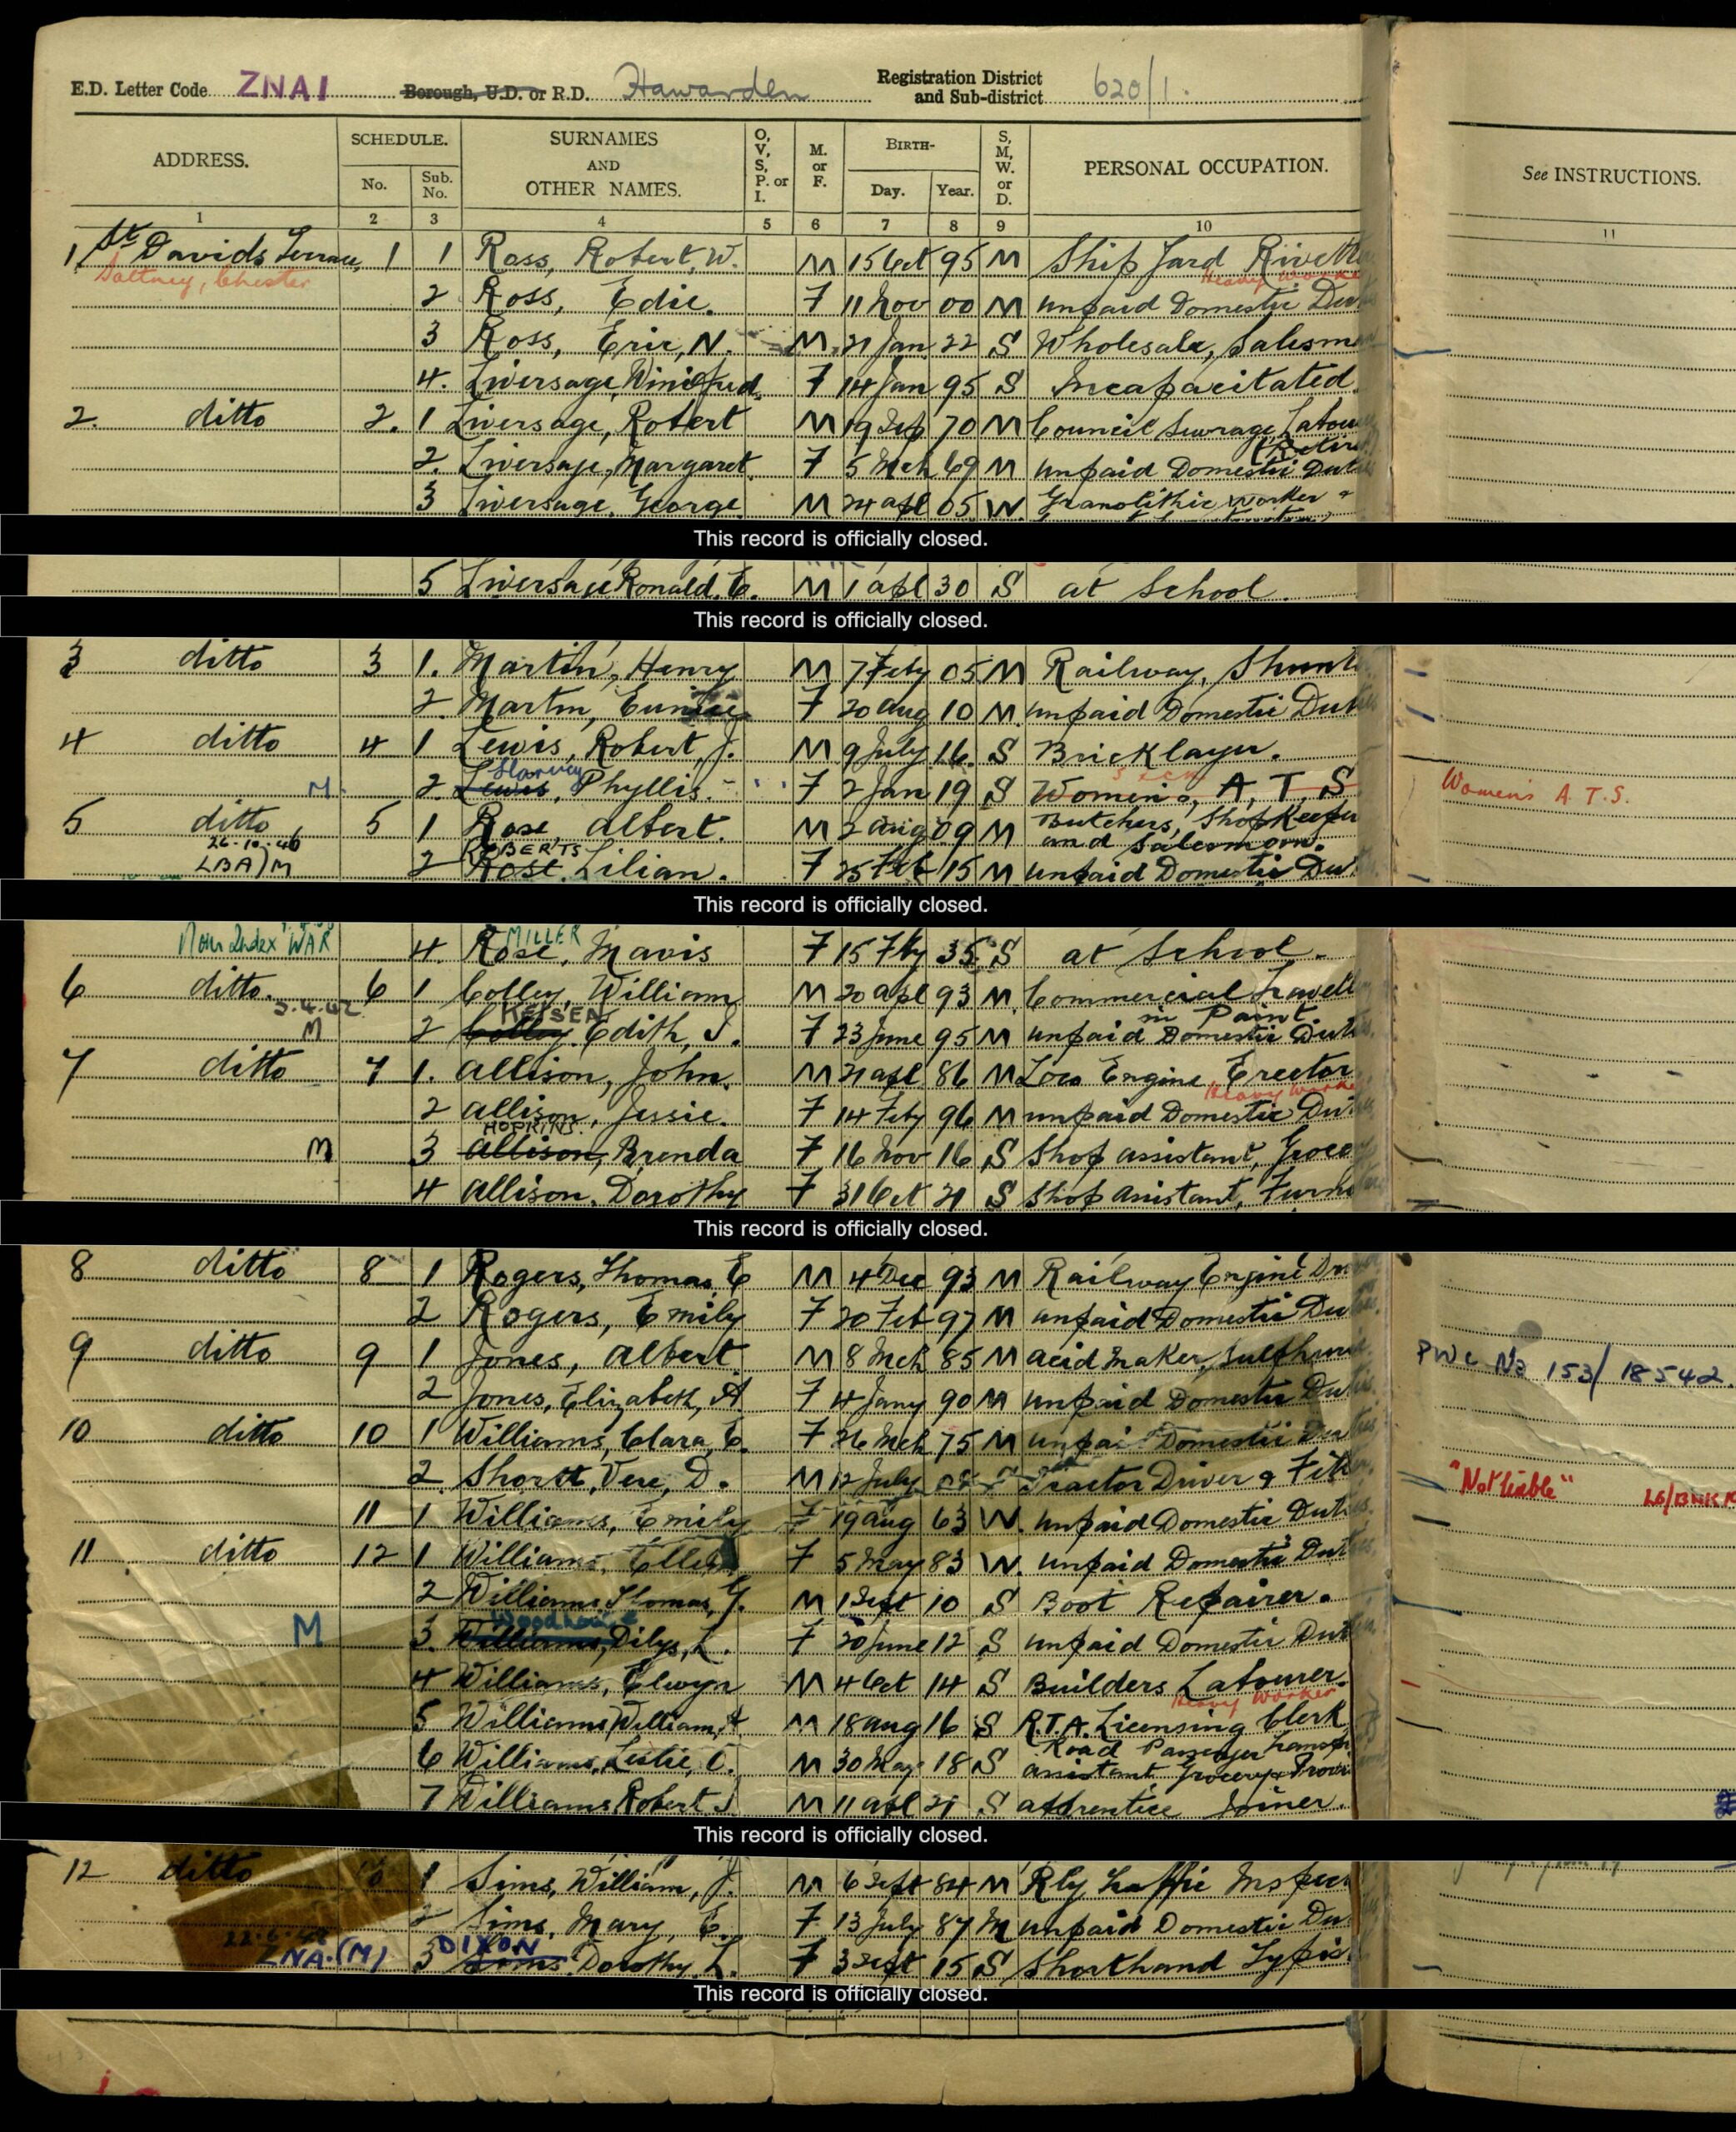 E.D. Letter Code ZNAI Borough, U.D. or R.D. Hawarden Registration District and Sub-district 620/1.
ADDRESS. SCHEDULE. No. Sub. No. SURNAMES AND OTHER NAMES. O, V, S, P. or I. M. or F. BIRTH- Day. Year. S, M, W. or D. PERSONAL OCCUPATION. See INSTRUCTIONS.
1 2 3 4 5 6 7 8 9 10 11
1, St Davids Terrace, 1 1 Ross, Robert, W. M 15 Oct 95 M Ship Yard
Saltney, Chester Heavy Worker
2 Ross, Edie. F 11 Nov 00 M unpaid Domestic
3 Ross, Eric, N. M 21 Jan 22 S Wholesale, Salesm
4. Liversage, Winifred F 14 Jan 95 S Incapacitated.
2. ditto 2. 1 Liversage, Robert M 19 Sep 70 M Council Sewrage
2. Liversage, Margaret F 5 Mch 69 M unpaid Domestic
3 Liversage, George M 24 apl 05 W. Granolithic worker
This record is officially closed.
5 Liversage Ronald. C. M 1 apl 30 S at School.
This record is officially closed.
3 ditto 3 1. Martin, Henry M 7 Feby 05 M Railway, Shunt
2. Martin, Eunice F 20 aug 10 M. unpaid Domestic Dut
4 ditto 4 1 Lewis, Robert, J. M 9 July 16. S Bricklayer.
Harvey
M. 2. Lewis, Phyllis. F 2 Jan 19 S Women's, A. T. S Womens A. T. S.
5 ditto 5 1 Rose, albert. M 2 aug 09 M Butchers, Shopkeeper
26-10-46 and Salesman.
ROBERTS
LBA)M 2 Rose. Lilian. F 25 Feb 15 M unpaid Domestic Dut
This record is officially closed.
MILLER
WAR 4. Rose, Mavis F 15 Fby 35 S at School.
6 ditto. 6 1 Colley, William M 20 apl 93 M. Commercial Travell
3.4.42 in Paint
M 2 Colley. Edith, S. F 23 June 95 M unpaid Domestic Dut
7 ditto 7 1. allison, John. M 21 apl 86 M Loco Engine Erector
Heavy Worke
2 allison, Jessie. F 14 Feby 96 M unpaid Domestic Dut
HOPKINS.
M 3 Allison, Brenda F 16 Nov 16 S Shop assistant, Groce
4 allison, Dorothy F 31 Oct 21 S Shop assistant, Furni
This record is officially closed.
8 ditto 8 1 Rogers, Thomas, E M 4 Dec 93 M Railway Engine Dri
2 Rogers, Emily F 20 Feb 97 M unpaid Domestic Du
9 ditto 9 1 Jones, albert M 8 Mch 85 M acid maker, Sulphuri PWC No 153/18542.
2 Jones, Elizabeth, A F 4 Jany 90 M unpaid Domestic Duties
10 ditto 10 1 Williams, Clara, E. F 26 Mch 75 M unpaid Domestic Duties
2. Shortt, Vere, D. M 12 July Tractor Driver & Fitt "Not liable"
11 1 Williams, Emily F 19 aug 63 W. unpaid Domestic Duties.
11 ditto 12 1 Williams, Ellen F 5 May 83 W. unpaid Domestic Duties.
2 Williams Thomas, G. M 1 Sept 10 S Boot Repairer.
M 3. Williams, Dilys, L. F 20 June 12 S unpaid Domestic Dut
4 Williams, Elwyn M 4 Oct 14 S Builders Labourer.
Heavy Worker
5 Williams William, A M 18 aug 16 S R.T.A. Licensing Clerk
Road Passenger Transp
6 Williams, Leslie, C. M 30 May 18 S assistant Grocery & Provi
7 Williams Robert M 11 apl 21 S apprentice Joiner.
This record is officially closed.
12 ditto 13 1 Sims, William, J. M 6 Sept 84 M Rly Traffic Inspec
2 Sims, Mary, E. F 13 July 87 M unpaid Domestic Du
22.6.42 DIXON
ZNA.(M) 3 Sims. Dorothy. L. F 3 Sept 15 S Shorthand Typis
This record is officially closed.